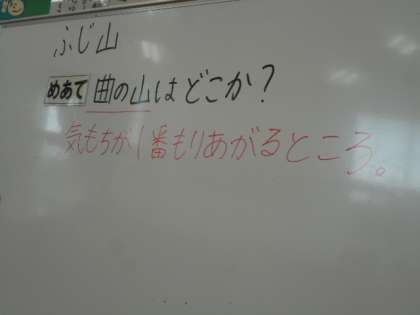 ふじ山
めあて 曲の山はどこか?
気もちが1番もりあがるところ。